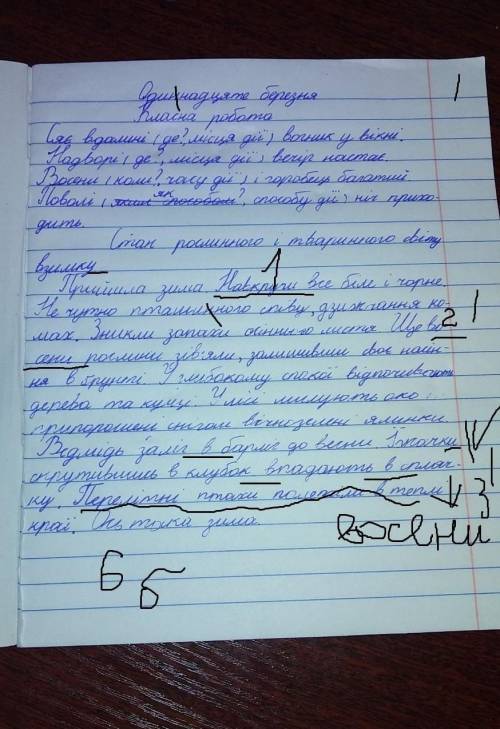 Одиннадцяте березня 1
Класна робота
Сяє вдалині (де?, місця дії) вогник у вікні.
Надворі (де?, місця дії) вечір настає.
Восени (коли?, часу дії) і горобець багатий
Поволі (яким способом? як, способу дії) ніч прихо-
дить.
Стан рослинного і тваринного світу
взимку
Прийшла зима. Навкруги все біле і чорне. 1
Не чутно пташиного співу, дзижчання ко- 1
мах. Зникли запахи осіннього листя. Ще во 2
сени рослини зів'яли, залишивши своє насін-
ня в ґрунті. У глибокому спокої відпочивають
дерева та кущі. У лісі милують око
припорошені снігом вічнозелені ялинки.
Ведмідь заліг в барліг до весни. Їжачки V
скрутившись в клубок впадають в спляч- 1
ку. Перелітні птахи полетіли в теплі V 3
краї. Ось така зима.
восени
6 б